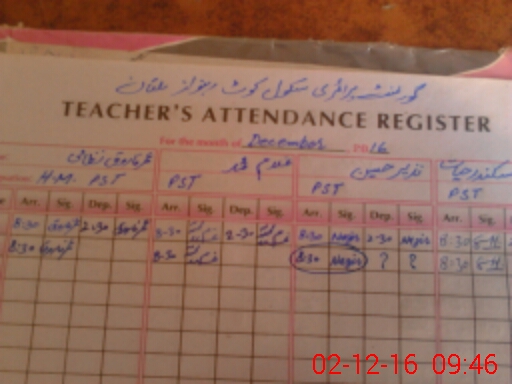 گورنمنٹ پرائمری سکول کوٹ ملتان
TEACHER'S ATTENDANCE REGISTER
For the month of December 2016
غلام نذیر حسین سکندر حیات
H.M. PST PST PST PST
Arr. Sig. Dep. Sig. Arr. Sig. Dep. Sig. Arr. Sig. Dep. Sig. Arr. Sig.
8:30 2:30 8:30 2:30 8:30 Nazir 2:30 Nazir 8:30
8:30 8:30 8:30 Nazir ? ? 8:30
02-12-16 09:46